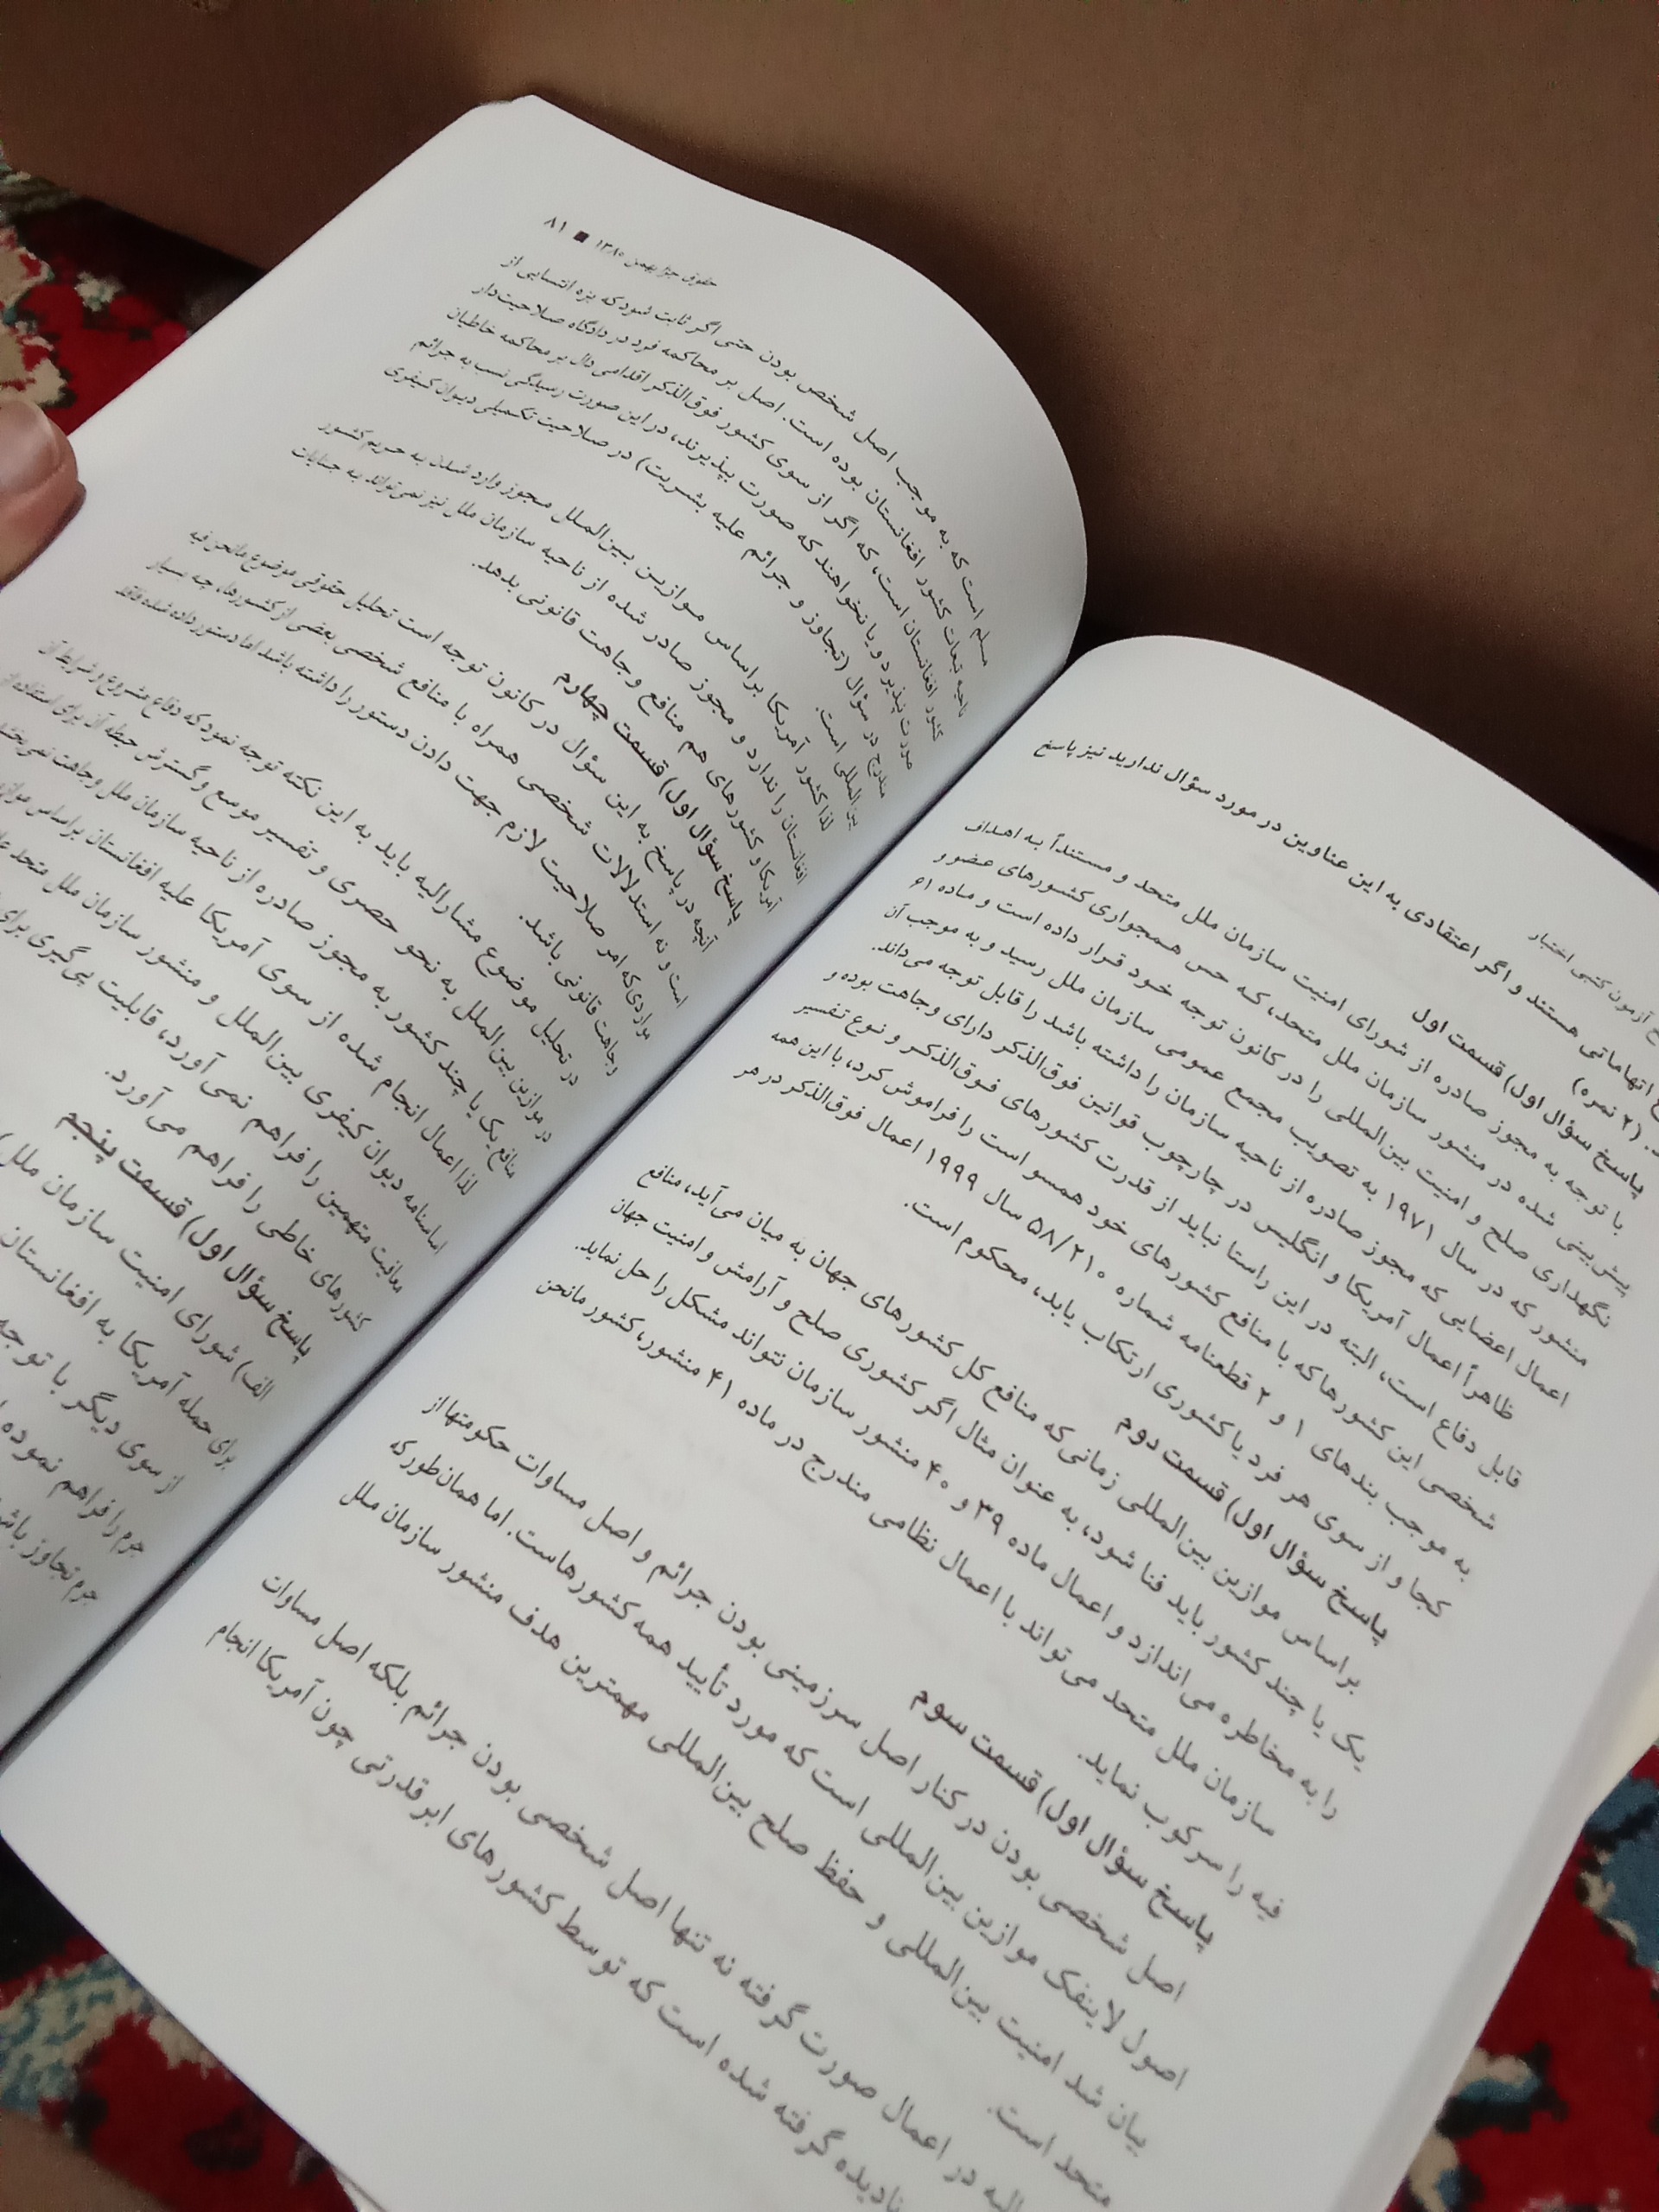 آزمون کتبی اختبار
اتهاماتی هستند و اگر اعتقادی به این عناوین در مورد سؤال ندارید نیز پاسخ
(۲ نمره)
پاسخ سؤال اول) قسمت اول
با توجه به مجوز صادره از شورای امنیت سازمان ملل متحد و مستنداً به اهداف
پیش‌بینی شده در منشور سازمان ملل متحد، که حس همجواری کشورهای عضو و
نگهداری صلح و امنیت بین‌المللی را در کانون توجه خود قرار داده است و ماده ۶۱
منشور که در سال ۱۹۷۱ به تصویب مجمع عمومی سازمان ملل رسید و به موجب آن
اعمال اعضایی که مجوز صادره از ناحیه سازمان را داشته باشد را قابل توجه می‌داند.
ظاهراً اعمال آمریکا و انگلیس در چارچوب قوانین فوق‌الذکر دارای وجاهت بوده و
قابل دفاع است، البته در این راستا نباید از قدرت کشورهای فوق‌الذکر و نوع تفسیر
شخصی این کشورها که با منافع کشورهای خود همسو است را فراموش کرد، با این همه
به موجب بندهای ۱ و ۲ قطعنامه شماره ۵۸/۲۱۰ سال ۱۹۹۹ اعمال فوق‌الذکر در هر
کجا و از سوی هر فرد یا کشوری ارتکاب یابد، محکوم است.
پاسخ سؤال اول) قسمت دوم
براساس موازین بین‌المللی زمانی که منافع کل کشورهای جهان به میان می‌آید، منافع
یک یا چند کشور باید فنا شود، به عنوان مثال اگر کشوری صلح و آرامش و امنیت جهان
را به مخاطره می‌اندازد و اعمال ماده ۳۹ و ۴۰ منشور سازمان نتواند مشکل را حل نماید.
سازمان ملل متحد می‌تواند با اعمال نظامی مندرج در ماده ۴۱ منشور، کشور مانحن
فیه را سرکوب نماید.
پاسخ سؤال اول) قسمت سوم
اصل شخصی بودن در کنار اصل سرزمینی بودن جرائم و اصل مساوات حکومتها از
اصول لاینفک موازین بین‌المللی است که مورد تأیید همه کشورهاست. اما همان‌طور که
بیان شد امنیت بین‌المللی و حفظ صلح بین‌المللی مهمترین هدف منشور سازمان ملل
متحد است.
در اعمال صورت گرفته نه تنها اصل شخصی بودن جرائم بلکه اصل مساوات
نادیده گرفته شده است که توسط کشورهای ابرقدرتی چون آمریکا انجام
حقوق جزا بهمن ۱۳۸۰ ■ ۸۱
مسلم است که به موجب اصل شخص بودن حتی اگر ثابت شود که بزه انتسابی از
ناحیه تبعات کشور افغانستان بوده است. اصل بر محاکمه فرد در دادگاه صلاحیت‌دار
کشور افغانستان است، که اگر از سوی کشور فوق‌الذکر اقدامی دال بر محاکمه خاطیان
صورت پذیرد و یا نخواهند که صورت بپذیرند، در این صورت رسیدگی نسب به جرائم
مندرج در سؤال (تجاوز و جرائم علیه بشریت) در صلاحیت تکمیلی دیوان کیفری
بین‌المللی است.
لذا کشور آمریکا براساس موازین بین‌الملل مجوز وارد شدن به حریم کشور
افغانستان را ندارد و مجوز صادر شده از ناحیه سازمان ملل نیز نمی‌تواند به جنایات
آمریکا و کشورهای هم منافع وجاهت قانونی بدهد.
پاسخ سؤال اول) قسمت چهارم
آنچه در پاسخ به این سؤال در کانون توجه است تحلیل حقوقی موضوع مانحن فیه
است و نه استدلالات شخصی همراه با منافع شخصی بعضی از کشورها، چه بسیار
مواردی که امر صلاحیت لازم جهت دادن دستور را داشته باشد اما دستور داده شده فاقد
وجاهت قانونی باشد.
در تحلیل موضوع مشارالیه باید به این نکته توجه نمود که دفاع مشروع و شرایط آن
در موازین بین‌الملل به نحو حصری و تفسیر موسع و گسترش حیطه آن برای استفاده از
منافع یک یا چند کشور به مجوز صادره از ناحیه سازمان ملل وجاهت نمی‌بخشد
لذا اعمال انجام شده از سوی آمریکا علیه افغانستان براساس
اساسنامه دیوان کیفری بین‌الملل و منشور سازمان ملل متحد
معافیت متهمین را فراهم نمی‌آورد، قابلیت پی‌گیری برای
کشورهای خاطی را فراهم می‌آورد.
پاسخ سؤال اول) قسمت پنجم
الف) شورای امنیت سازمان ملل
برای حمله آمریکا به افغانستان
از سوی دیگر با توجه
جرم را فراهم نموده
جرم تجاوز باشد